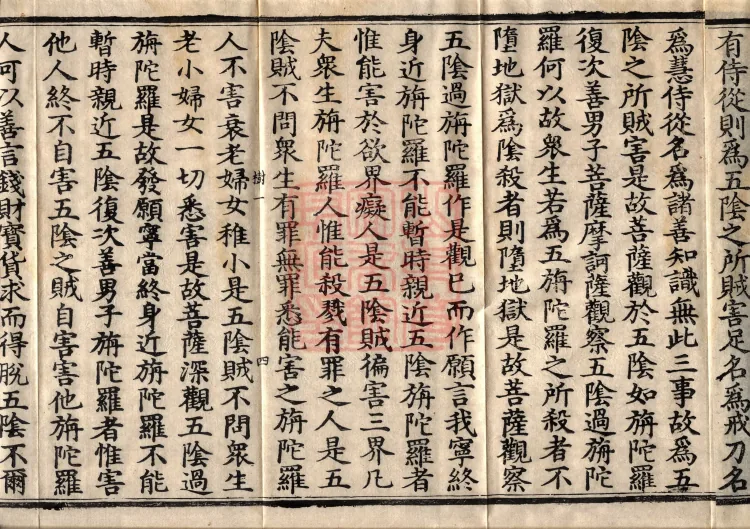 有侍從則爲五陰之所賊害足名爲戒刀名
爲慧侍從名爲諸善知識無此三事故爲五
陰之所賊害是故菩薩觀於五陰如旃陀羅
復次善男子菩薩摩訶薩觀察五陰過旃陀
羅何以故衆生若爲五旃陀羅之所殺者不
墮地獄爲陰殺者則墮地獄是故菩薩觀察
五陰過旃陀羅作是觀已而作願言我寧終
身近旃陀羅不能暫時親近五陰旃陀羅者
惟能害於欲界癡人是五陰賊徧害三界凡
夫衆生旃陀羅人惟能殺戮有罪之人是五
陰賊不問衆生有罪無罪悉能害之旃陀羅
樹一 四
人不害衰老婦女稚小是五陰賊不問衆生
老小婦女一切悉害是故菩薩深觀五陰過
旃陀羅是故發願寧當終身近旃陀羅不能
暫時親近五陰復次善男子旃陀羅者惟害
他人終不自害五陰之賊自害害他旃陀羅
人可以善言錢財寶貨求而得脫五陰不爾